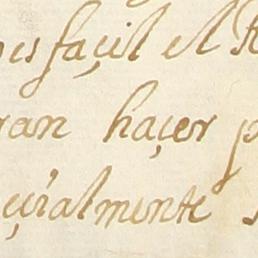 es façil el
ran haçer p
çialmente